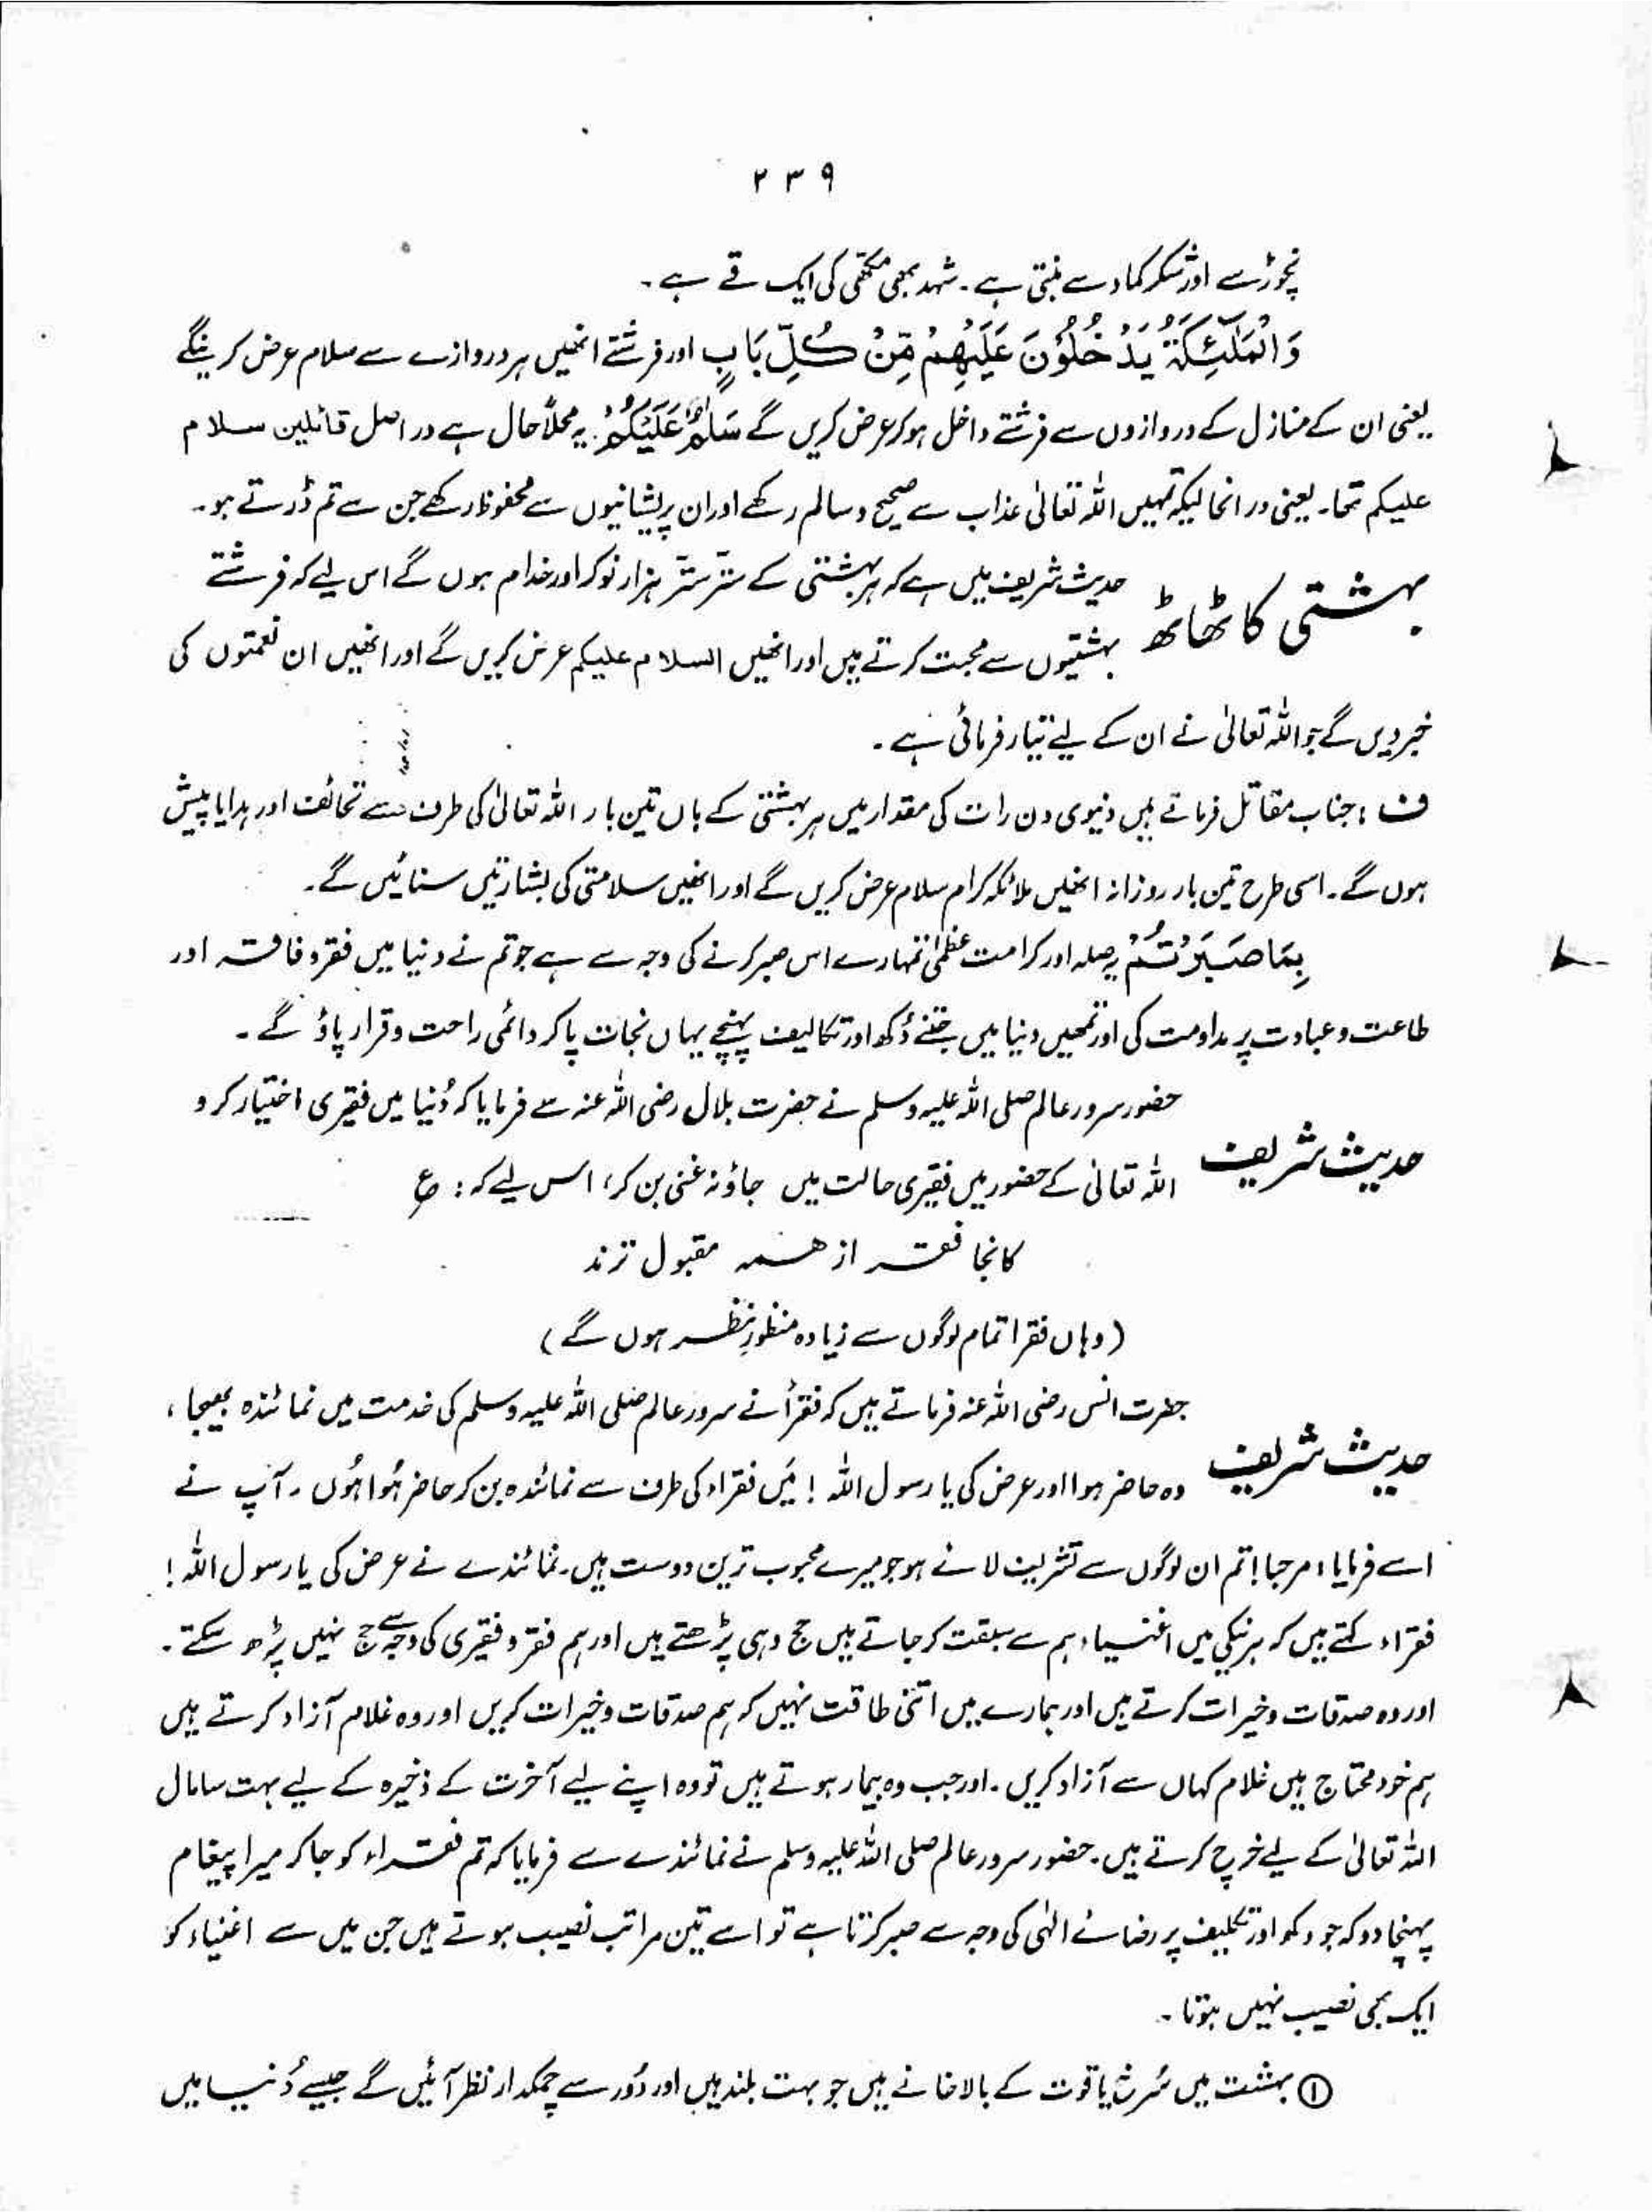 ۲۳۹
نچوڑ سے اور شکر کماد سے بنتی ہے۔ شہد بھی مکھی کی ایک قے ہے۔
وَالْمَلٰٓئِكَةُ يَدْخُلُوْنَ عَلَيْهِمْ مِّنْ كُلِّ بَابٍ اور فرشتے انھیں ہر دروازے سے سلام عرض کرینگے
یعنی ان کے منازل کے دروازوں سے فرشتے داخل ہو کر عرض کریں گے سَلٰمٌ عَلَيْكُمْ یہ محلاً حال ہے در اصل قائلین سلام
علیکم تھا۔ یعنی در انحالیکہ تمہیں اللہ تعالیٰ عذاب سے صحیح و سالم رکھے اور ان پریشانیوں سے محفوظ رکھے جن سے تم ڈرتے ہو۔
بہشتی کا ٹھاٹھ
حدیث شریف میں ہے کہ ہر بہشتی کے ستّر ستّر ہزار نوکر اور خدام ہوں گے اس لیے کہ فرشتے
بہشتیوں سے محبت کرتے ہیں اور انھیں السلام علیکم عرض کریں گے اور انھیں ان نعمتوں کی
خبر دیں گے جو اللہ تعالیٰ نے ان کے لیے تیار فرمائی ہے۔
ف : جناب مقاتل فرماتے ہیں دنیوی دن رات کی مقدار میں ہر بہشتی کے ہاں تین بار اللہ تعالیٰ کی طرف سے تحائف اور ہدایا پیش
ہوں گے۔ اسی طرح تین بار روزانہ انھیں ملائکہ کرام سلام عرض کریں گے اور انھیں سلامتی کی بشارتیں سنائیں گے۔
بِمَا صَبَرْتُمْ یہ صلہ اور کرامت عظمیٰ تمہارے اس صبر کرنے کی وجہ سے ہے جو تم نے دنیا میں فقر و فاقہ اور
طاعت و عبادت پر مداومت کی اور تمھیں دنیا میں جتنے دُکھ اور تکالیف پہنچے یہاں نجات پا کر دائمی راحت و قرار پاؤ گے۔
حدیث شریف
حضور سرور عالم صلی اللہ علیہ وسلم نے حضرت بلال رضی اللہ عنہ سے فرمایا کہ دُنیا میں فقیری اختیار کرو
اللہ تعالیٰ کے حضور میں فقیری حالت میں جاؤ نہ غنی بن کر، اس لیے کہ : ع
کانجا فقر از ہمہ مقبول ترند
(وہاں فقرا تمام لوگوں سے زیادہ منظورِ نظر ہوں گے)
حدیث شریف
حضرت انس رضی اللہ عنہ فرماتے ہیں کہ فقرأ نے سرور عالم صلی اللہ علیہ وسلم کی خدمت میں نمائندہ بھیجا،
وہ حاضر ہوا اور عرض کی یا رسول اللہ ! میَں فقراء کی طرف سے نمائندہ بن کر حاضر ہُوا ہُوں۔ آپ نے
اسے فرمایا : مرحبا! تم ان لوگوں سے تشریف لائے ہو جو میرے محبوب ترین دوست ہیں۔ نمائندے نے عرض کی یا رسول اللہ !
فقراء کہتے ہیں کہ ہر نیکی میں اغنیاء ہم سے سبقت کر جاتے ہیں حج وہی پڑھتے ہیں اور ہم فقر و فقیری کی وجہ سے حج نہیں پڑھ سکتے۔
اور وہ صدقات و خیرات کرتے ہیں اور ہمارے میں اتنی طاقت نہیں کہ ہم صدقات و خیرات کریں اور وہ غلام آزاد کرتے ہیں
ہم خود محتاج ہیں غلام کہاں سے آزاد کریں۔ اور جب وہ بیمار ہوتے ہیں تو وہ اپنے لیے آخرت کے ذخیرہ کے لیے بہت سا مال
اللہ تعالیٰ کے لیے خرچ کرتے ہیں۔ حضور سرور عالم صلی اللہ علیہ وسلم نے نمائندے سے فرمایا کہ تم فقراء کو جا کر میرا پیغام
پہنچا دو کہ جو دکھ اور تکلیف پر رضائے الٰہی کی وجہ سے صبر کرتا ہے تو اسے تین مراتب نصیب ہوتے ہیں جن میں سے اغنیاء کو
ایک بھی نصیب نہیں ہوتا۔
① بہشت میں سُرخ یاقوت کے بالاخانے ہیں جو بہت بلند ہیں اور دُور سے چمکدار نظر آئیں گے جیسے دُنیا میں